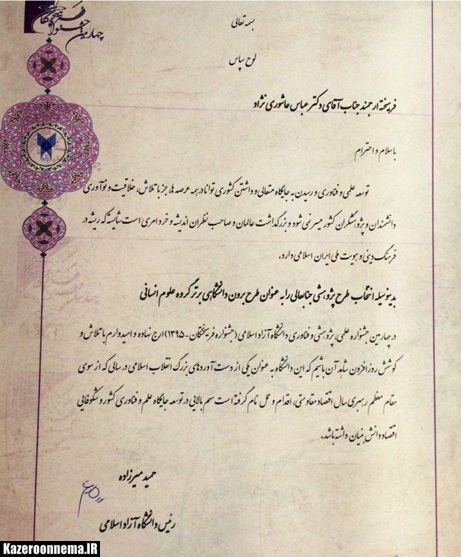 چهارمین جشنواره فرهیختگان
بسمه تعالی
لوح سپاس
فرهیخته ارجمند جناب آقای دکتر عباس عاشوری نژاد
با سلام و احترام
توسعه علمی و فناوری و رسیدن به جایگاه متعالی و داشتن کشوری توانا در همه عرصه ها، جز با تلاش، خلاقیت و نوآوری
دانشمندان و پژوهشگران کشور میسر نمی شود و بزرگداشت عالمان و صاحب نظران اندیشه و خرد امری است شایسته که ریشه در
فرهنگ دینی و هویت ملی ایران اسلامی دارد.
بدینوسیله انتخاب طرح پژوهشی جنابعالی را به عنوان طرح برون دانشگاهی برتر گروه علوم انسانی
در چهارمین جشنواره علمی، پژوهشی و فناوری دانشگاه آزاد اسلامی (جشنواره فرهیختگان-۱۳۹۵) ارج نهاده و امیدوارم با تلاش و
کوشش روزافزون شاهد آن باشیم که این دانشگاه به عنوان یکی از دست آوردهای بزرگ انقلاب اسلامی در سالی که از سوی
مقام معظم رهبری سال اقتصاد مقاومتی، اقدام و عمل نام گرفته است سهم بالایی در توسعه جایگاه علم و فناوری کشور و شکوفایی
اقتصاد دانش بنیان داشته باشد.
حمید میرزاده
رئیس دانشگاه آزاد اسلامی
Kazeroonnema.IR